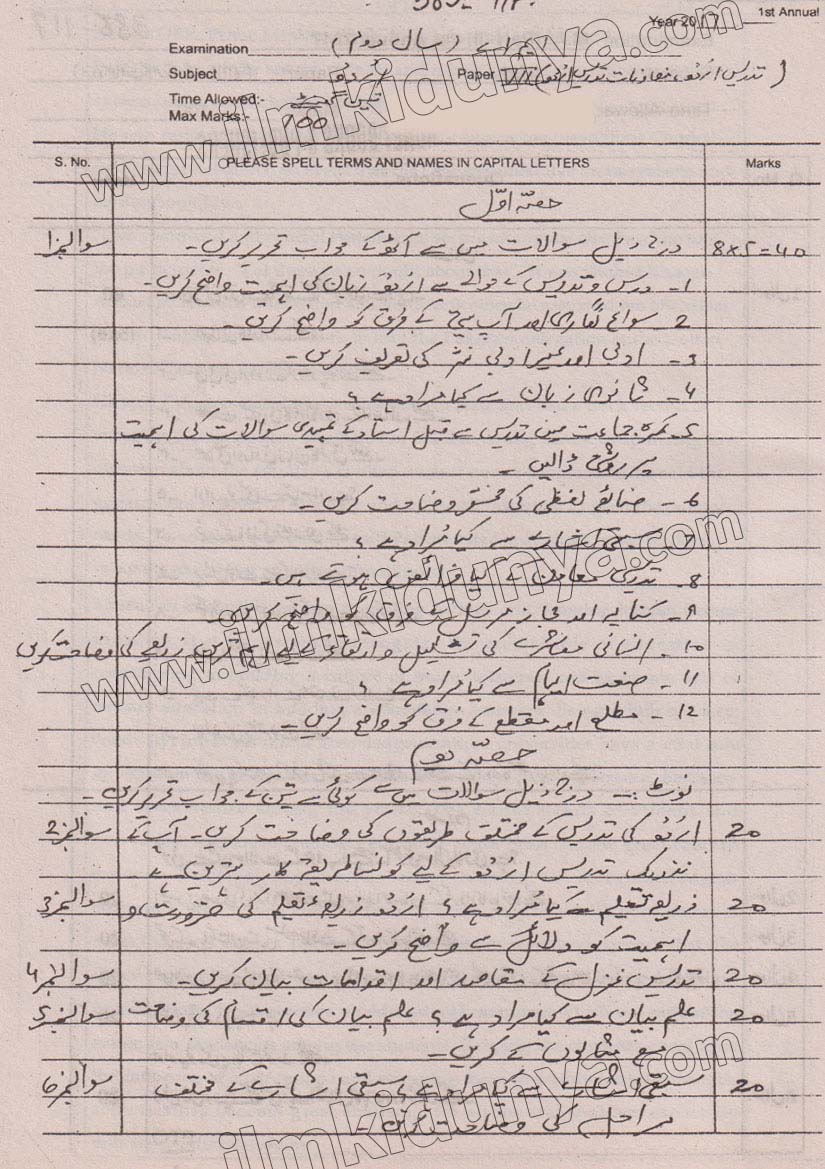 Year 2017 1st Annual
Examination ایم اے (سال دوم)
Subject اردو Paper VII (تدریس اردو)
Time Allowed:- تین گھنٹے
Max Marks:- 100
S. No. PLEASE SPELL TERMS AND NAMES IN CAPITAL LETTERS Marks
حصّہ اوّل
سوال نمبر 1 درج ذیل سوالات میں سے آٹھ کے جواب تحریر کریں۔ 8x5=40
1- درس و تدریس کے حوالے سے اردو زبان کی اہمیت واضح کریں۔
2- سوانح نگاری اور آپ بیتی کے فرق کو واضح کریں۔
3- ادبی اور غیر ادبی نثر کی تعریف کریں۔
4- ثانوی زبان سے کیا مراد ہے؟
5- کمرہ جماعت میں تدریس سے قبل استاد کے تمہیدی سوالات کی اہمیت
پر روشنی ڈالیں۔
6- صنائع لفظی کی مختصر وضاحت کریں۔
7- سبقی اشارے سے کیا مراد ہے؟
8- تدریسی معاون کے کیا فرائض ہوتے ہیں۔
9- کنایہ اور مجاز مرسل کے فرق کو واضح کریں۔
10- انسانی معاشرے کی تشکیل و ارتقا کے لیے اہم ترین ذریعے کی وضاحت کریں
11- صنعت ایہام سے کیا مراد ہے؟
12- مطلع اور مقطع کے فرق کو واضح کریں۔
حصّہ دوم
نوٹ:- درج ذیل سوالات میں سے کوئی سے تین کے جواب تحریر کریں۔
سوال نمبر 2 اردو کی تدریس کے مختلف طریقوں کی وضاحت کریں۔ آپ کے 20
نزدیک تدریس اردو کے لیے کونسا طریقہ کار بہترین ہے۔
سوال نمبر 3 ذریعہ تعلیم سے کیا مراد ہے؟ اردو ذریعہ تعلیم کی ضرورت و 20
اہمیت کو دلائل سے واضح کریں۔
سوال نمبر 4 تدریس غزل کے مقاصد اور اقدامات بیان کریں۔ 20
سوال نمبر 5 علم بیان سے کیا مراد ہے؟ علم بیان کی اقسام کی وضاحت 20
مع مثالوں کے کریں۔
سوال نمبر 6 سبقی اشارے سے کیا مراد ہے؟ سبقی اشارے کے مختلف 20
مراحل کی وضاحت کریں۔
www.ilmkidunya.com
www.ilmkidunya.com
www.ilmkidunya.com
ilmkidunya.com